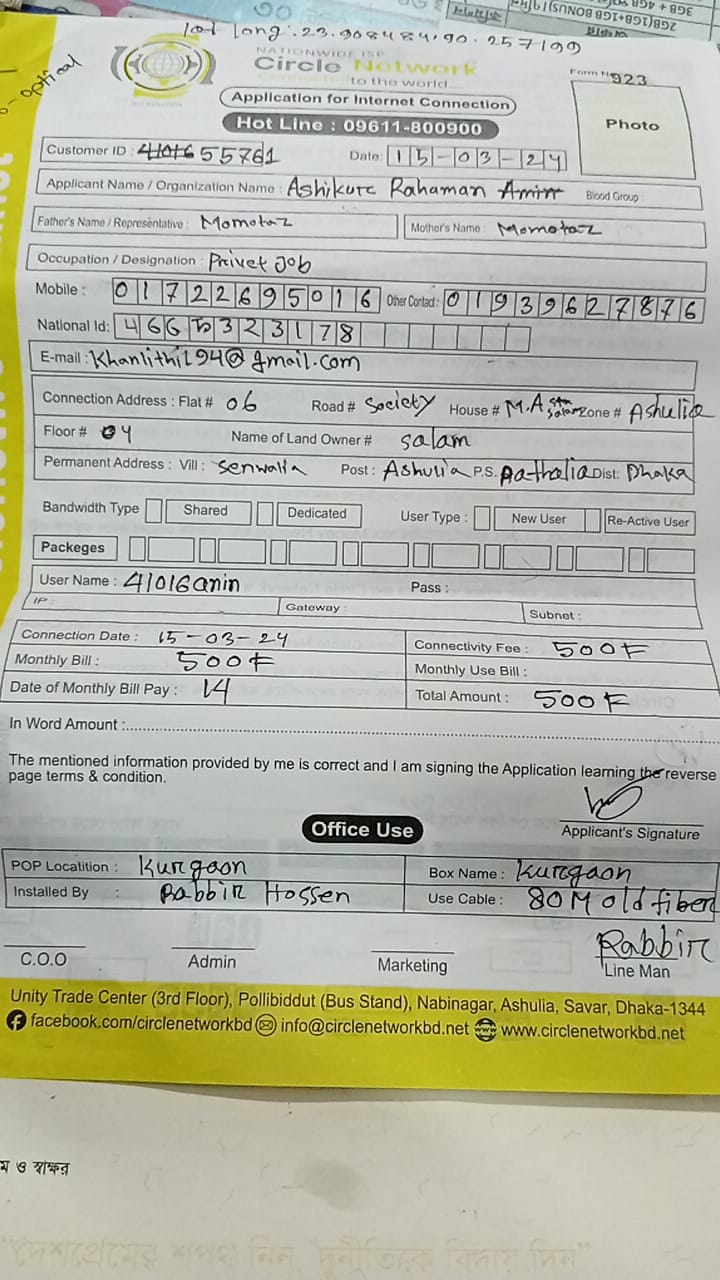 lat long : 23.908484, 90.257199
NATIONWIDE ISP
Circle Network
Connected to the world....
Form No 923
Optical
Application for Internet Connection
Hot Line : 09611-800900
Photo
Customer ID : 55761
Date: 15-03-24
Applicant Name / Organization Name : Ashikure Rahaman Amin Blood Group :
Father's Name / Representative : Momotaz Mother's Name : Momotaz
Occupation / Designation : Privet Job
Mobile : 01722695016 Other Contact : 01939627876
National Id: 4665323178
E-mail : @gmail.com
Connection Address : Flat # 06 Road # Society House # M.A salam Zone # Ashulia
Floor # 04 Name of Land Owner # salam
Permanent Address : Vill : Senwalia Post : Ashulia P.S. Pathalia Dist: Dhaka
Bandwidth Type Shared Dedicated User Type : New User Re-Active User
Packeges
User Name : 41016amin Pass :
IP : Gateway : Subnet :
Connection Date : 15-03-24 Connectivity Fee : 500৳
Monthly Bill : 500৳ Monthly Use Bill :
Date of Monthly Bill Pay : 14 Total Amount : 500৳
In Word Amount :
The mentioned information provided by me is correct and I am signing the Application learning the reverse
page terms & condition.
Applicant's Signature
Office Use
POP Locatition : Kurgaon Box Name : Kurgaon
Installed By : Rabbir Hossen Use Cable : 80M old fiber
Rabbir
C.O.O Admin Marketing Line Man
Unity Trade Center (3rd Floor), Pollibiddut (Bus Stand), Nabinagar, Ashulia, Savar, Dhaka-1344
facebook.com/circlenetworkbd info@circlenetworkbd.net www.circlenetworkbd.net
ম ও স্বাক্ষর
"দেশপ্রেমের শপথ নিন, দুর্নীতিকে বিদায় দিন"